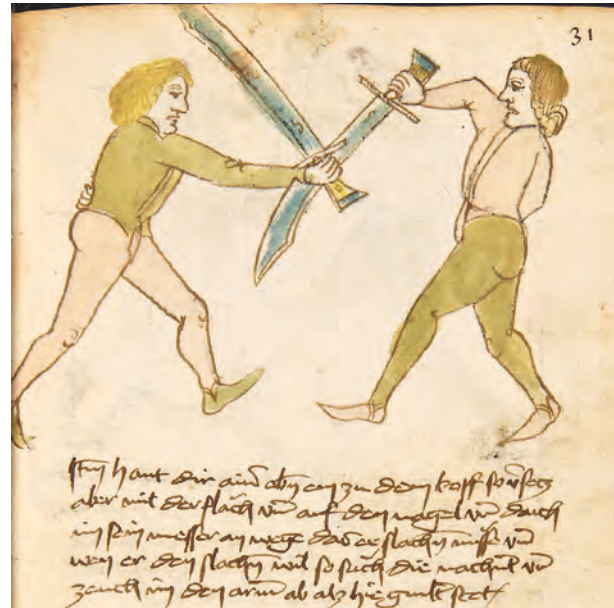 31
Itm haut dir ainr obn ein zu dem kopff so vsetz
aber mit der flach vn auf den nagel vn druck
im sein messer an wege das er slachn muß vn
wen er den slachn wil so such die nachnt vn
zeuch im den arm ab alz hie gmilt stet